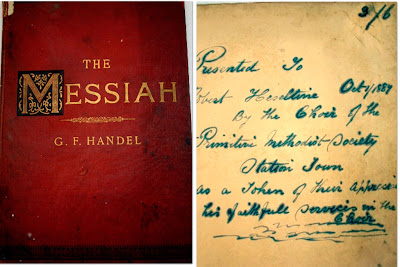 THE
MESSIAH
G. F. HANDEL
3/6
Presented To
Heseltine Oct 1/1887
By the Choir of the
Primitive Methodist Society
Station Town
as a Token of their
his faithfull services in the
Choir